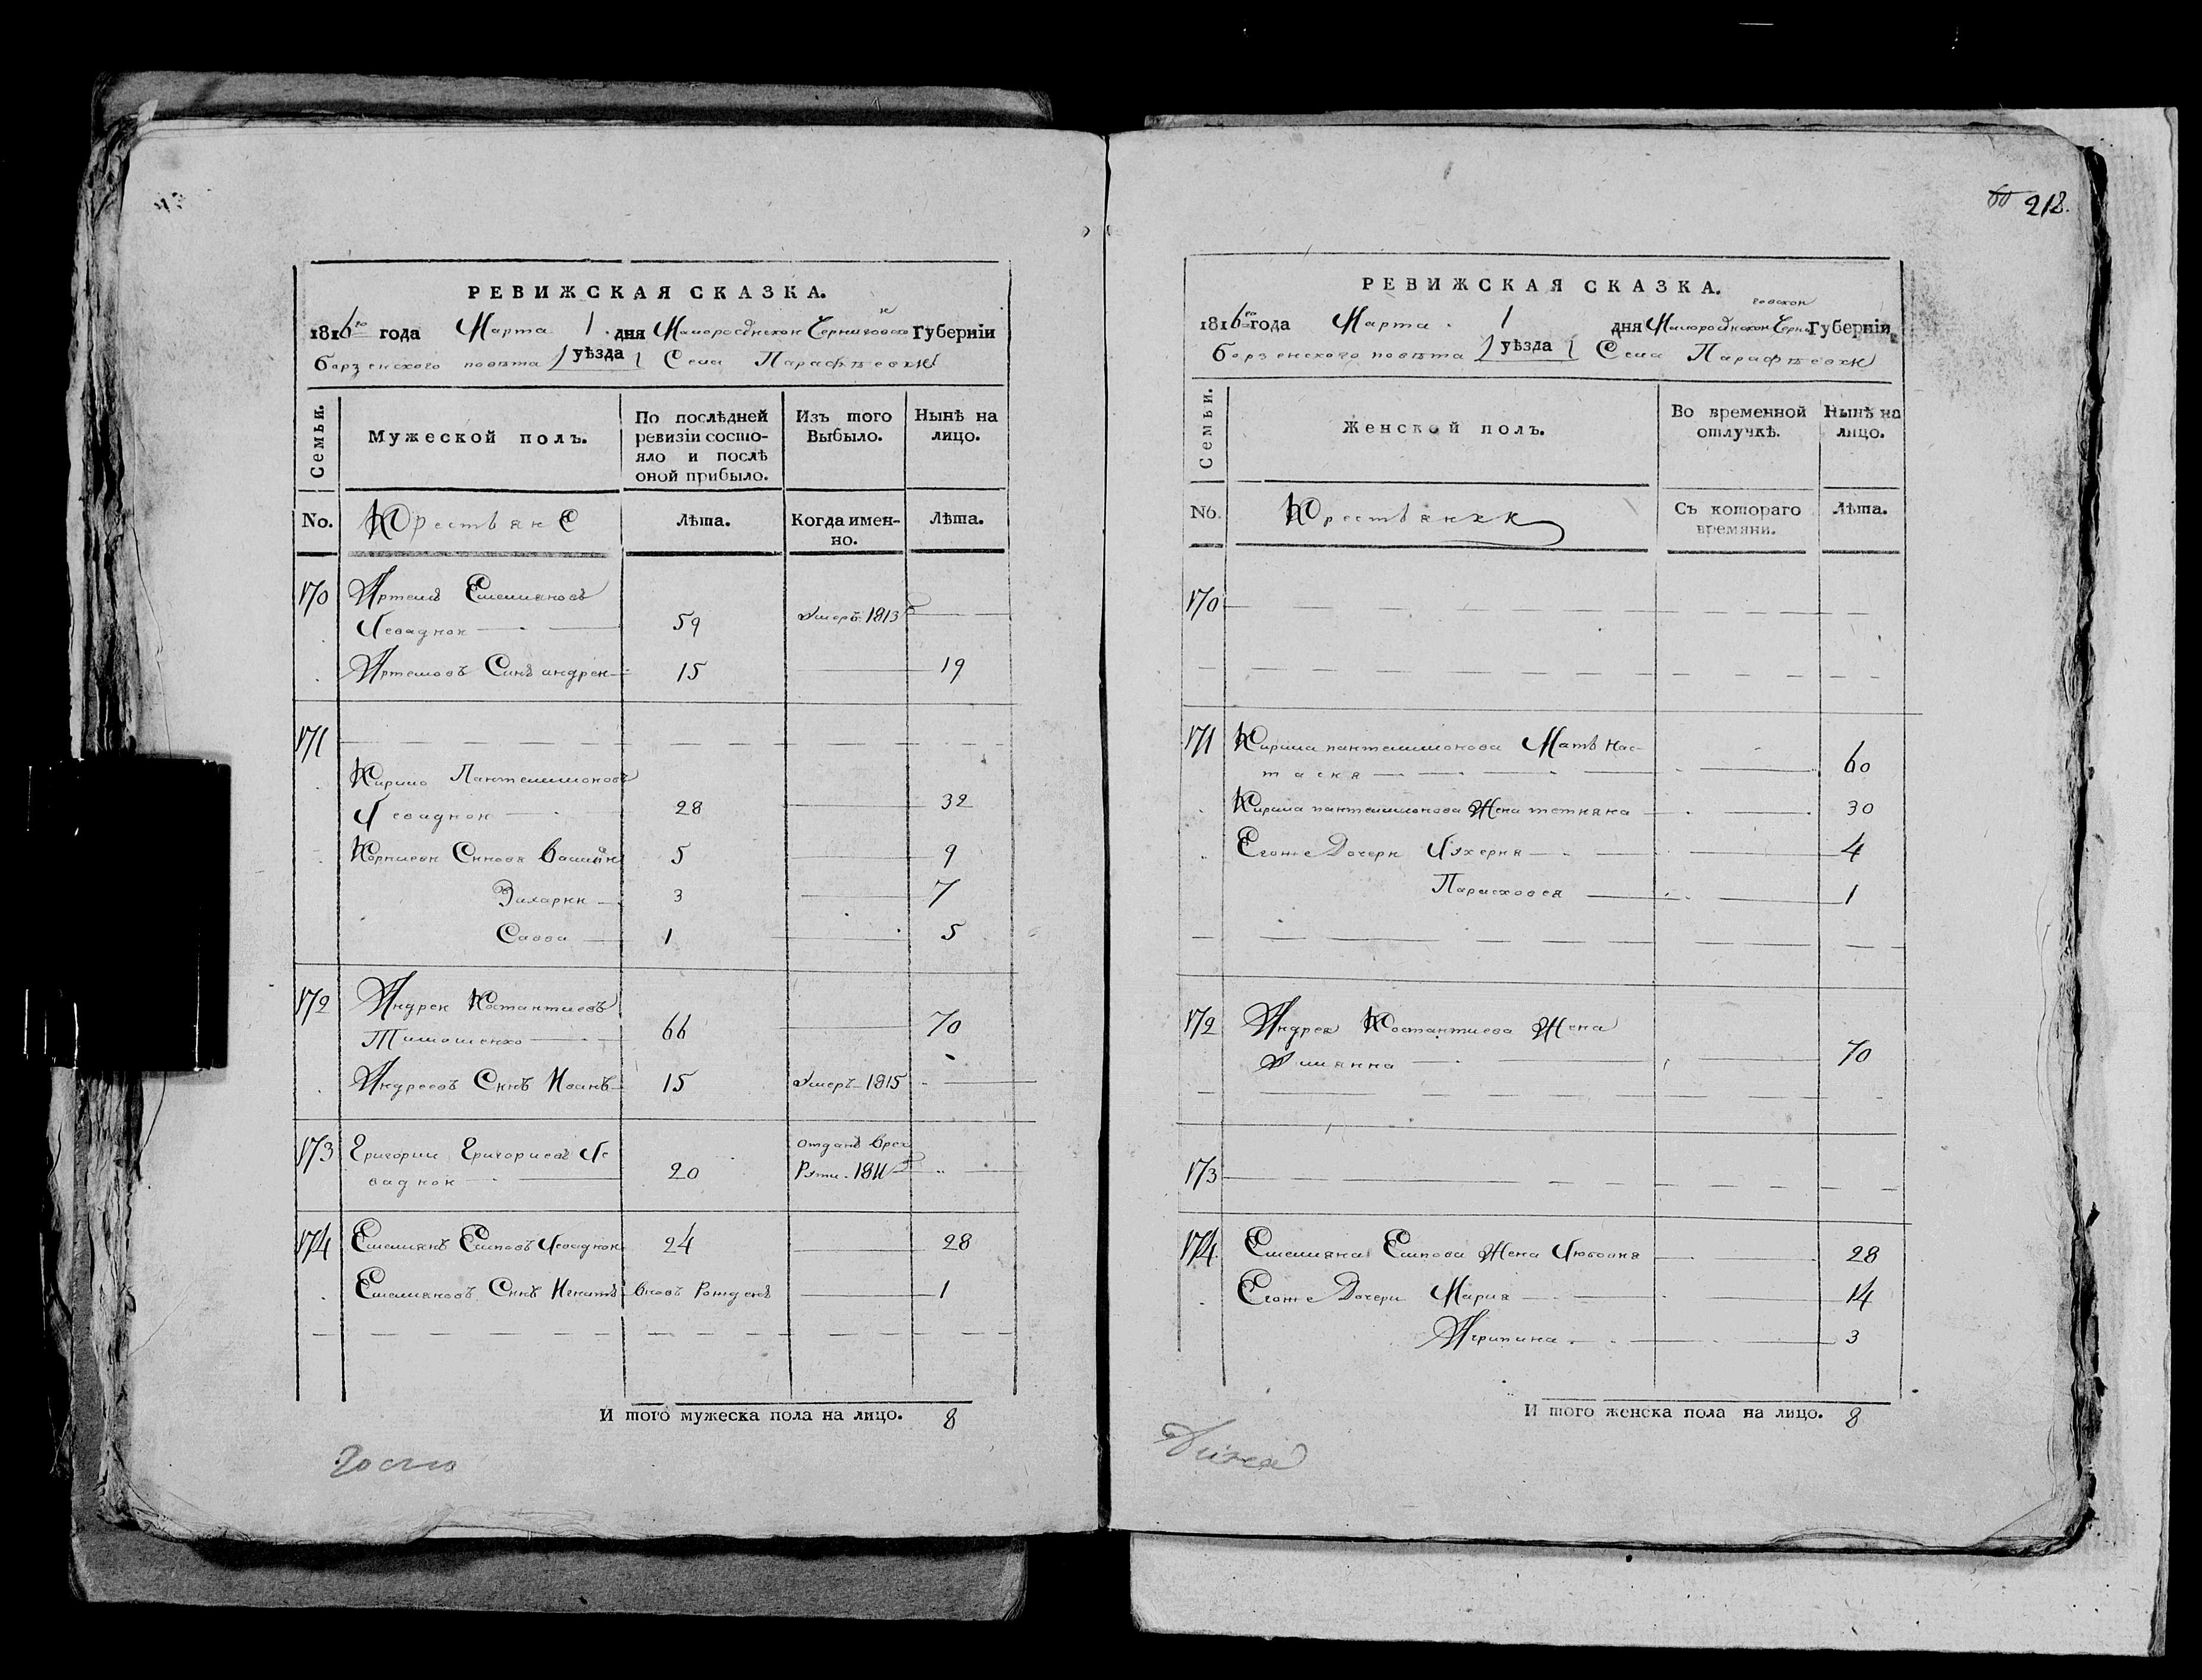 218.
РЕВИЖСКАЯ СКАЗКА.
1816го года Марта 1 дня Малоросійской Черниговской Губерніи
борзенского повѣта уѣзда Села Парафѣевки
Семьи.
Мужеской полъ.
По послѣдней
ревизіи состо-
яло и послѣ
оной прибыло.
Изъ того
Выбыло.
Нынѣ на
лицо.
No.
Крестьяне
Лѣта.
Когда имен-
но.
Лѣта.
170 Артемъ Емельяновъ
Левадной 59 Умеръ 1813
Артемовъ Синъ андрей 15 19
171
Кирило Пантелимоновъ
Левадной 28 32
5 9
Захарий 3 7
Савва 1 5
172 Андрей Костантиевъ
Тимошенко 66 70
Андреевъ Синъ Иванъ 15 Умеръ 1815
173 Григорий Григориевъ Ле-
вадной 20 отданъ врек
Руты 1811
174 Емельянъ Левадной 24 28
Емельяновъ Синъ Игнатъ вновь Рожденъ 1
И того мужеска пола на лицо. 8
РЕВИЖСКАЯ СКАЗКА.
1816го года Марта 1 дня Малоросійской Черниговской Губерніи
борзенского повѣта уѣзда Села Парафѣевки
Семьи.
Женской полъ.
Во временной
отлучкѣ.
Нынѣ на
лицо.
No.
Крестьянки
Съ котораго
времяни.
Лѣта.
170
171 Кирила пантелимонова Мать Нас-
тасия 60
Кирила пантелимонова Жена тетияна 30
Егоже Дочери Лукерия 4
Парасковея 1
172 Андрея Костантиева Жена
Улиянна 70
173
174 Емельяна Жена 28
Егоже Дочери Мария 14
Агрипина 3
И того женска пола на лицо. 8